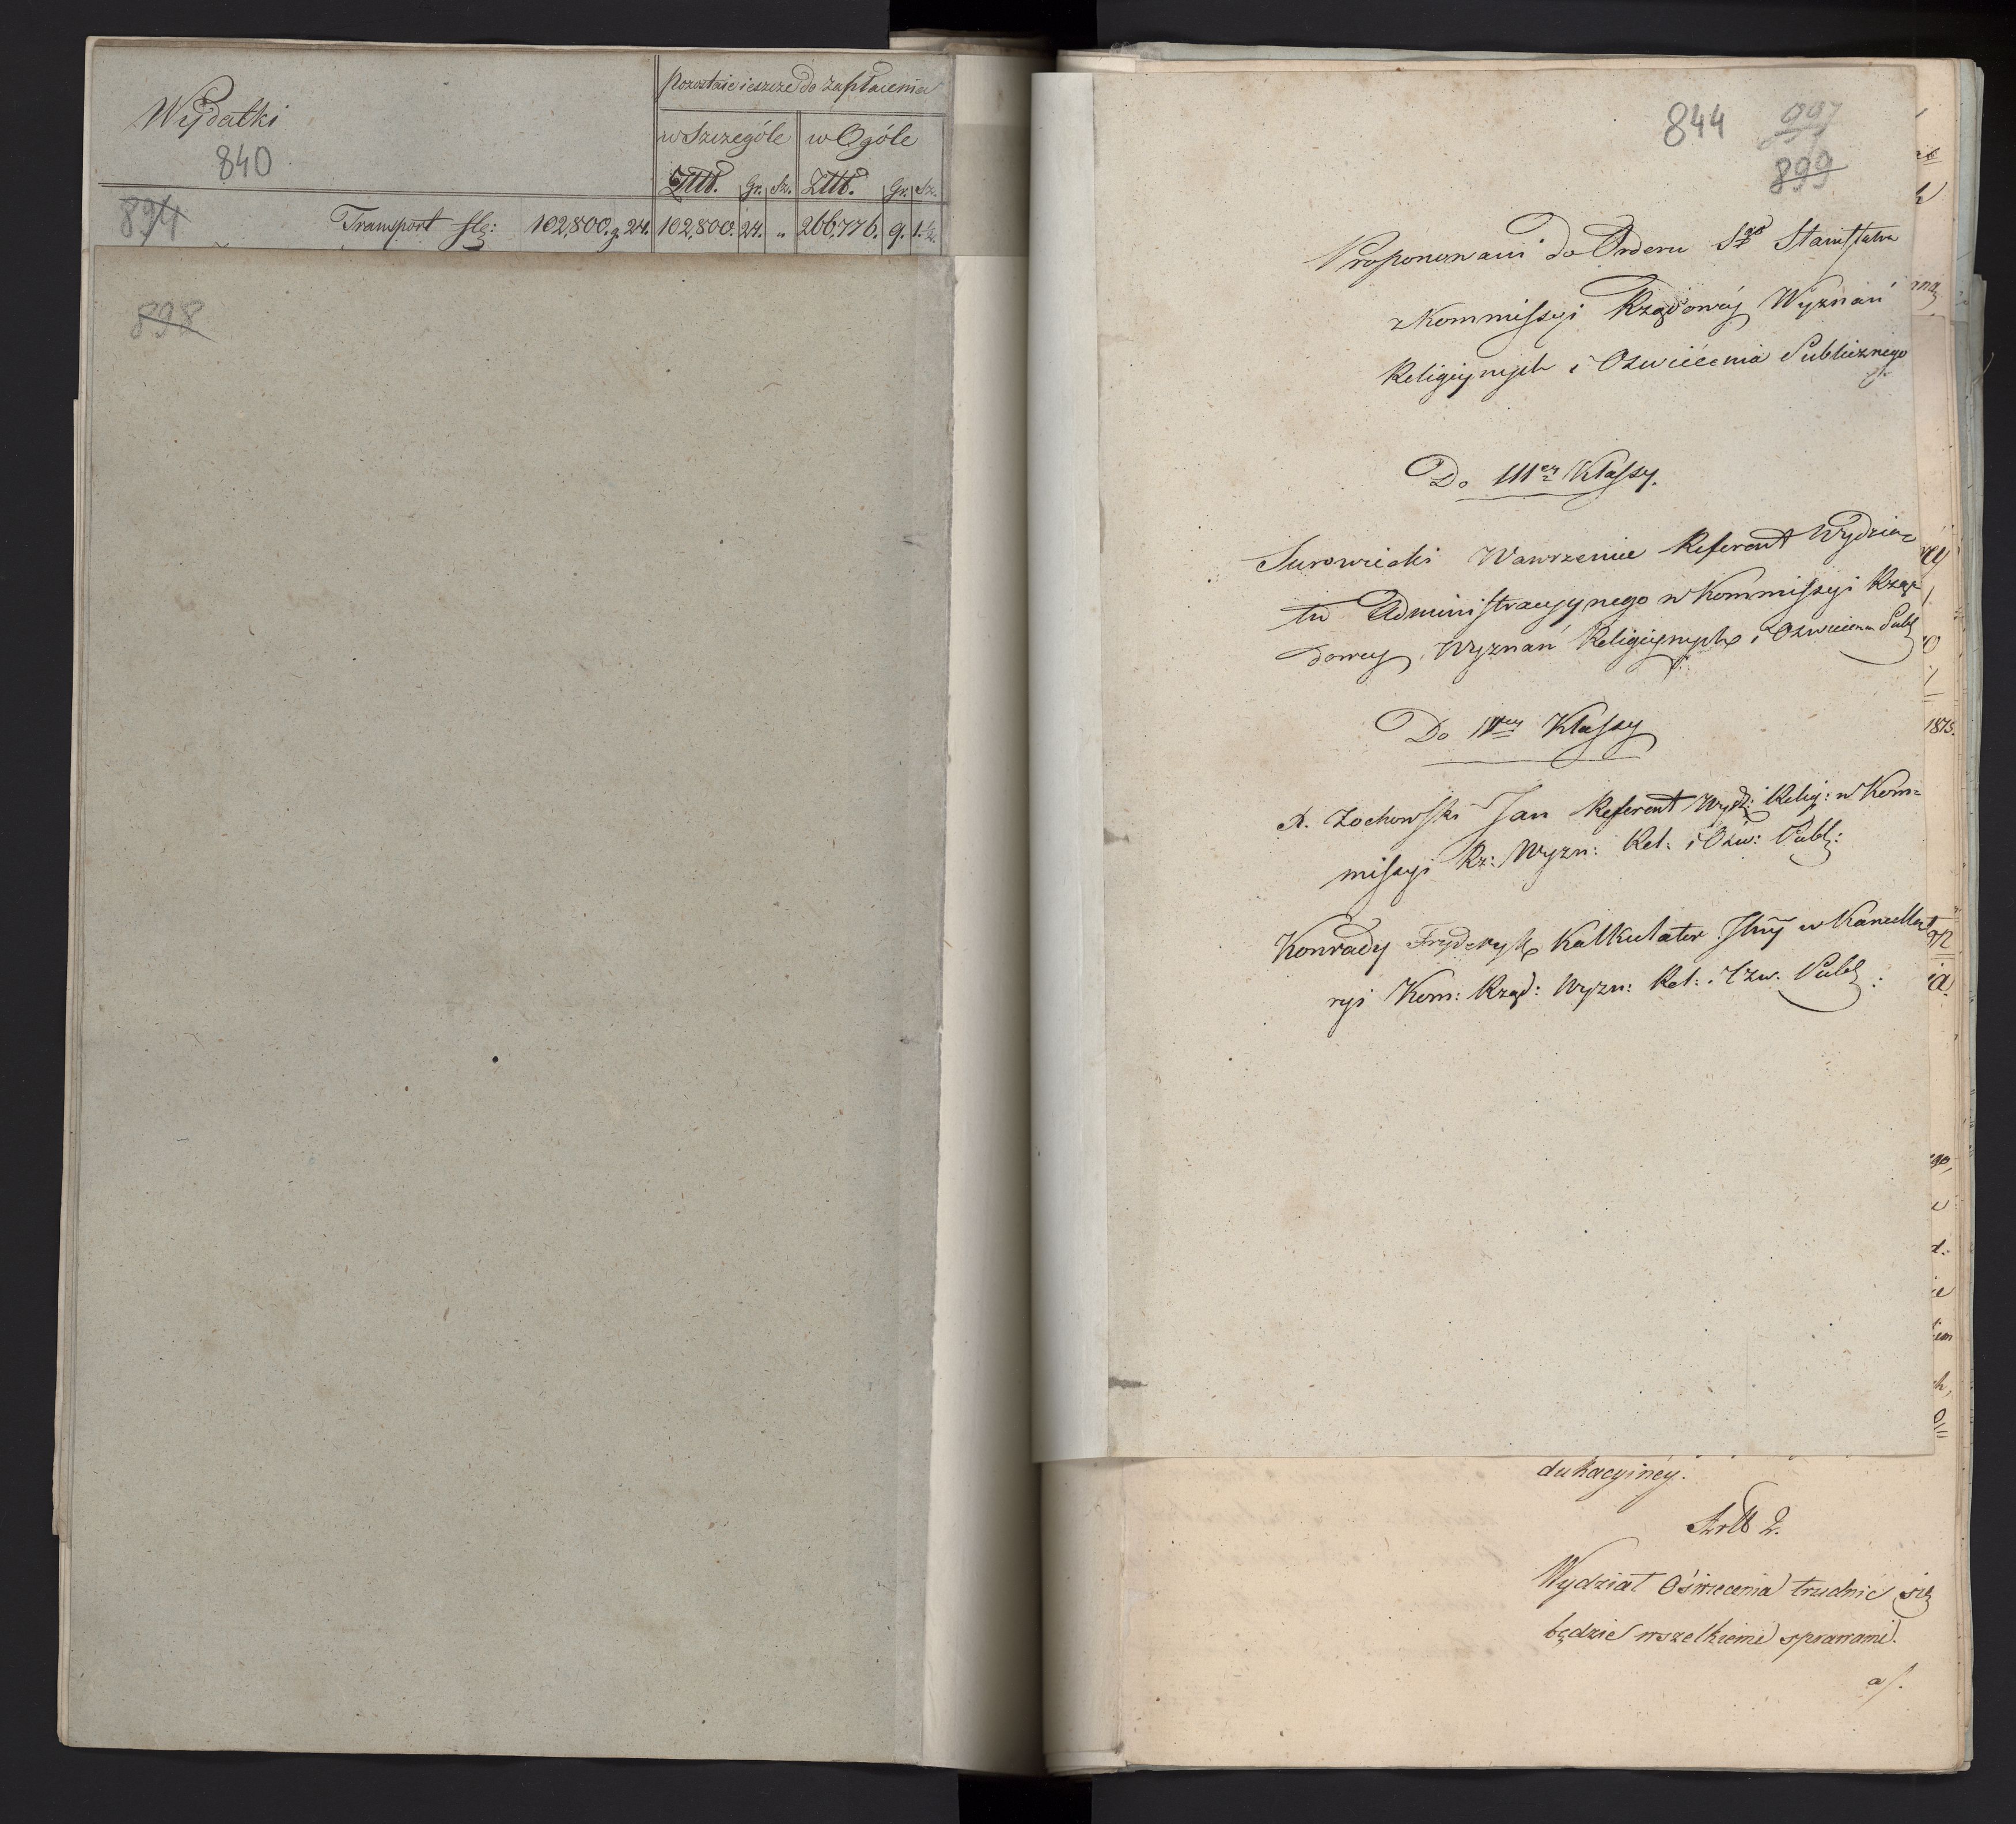 Wydatki
840
894
Pozostaie ieszcze do zapłacenia
w Szczególe w Ogóle
Złłł. Gr. Sz. Złłł. Gr. Sz.
Transport Złł: 102,800. g. 24. 102,800. 24. " 266,776. 9. 1.½.
898
844 997
899
Proponowani do Orderu Sgo Stanisława
z Kommissyi Rządowéy Wyznań
Religiynych i Oświécenia Publicznego
Do IIIey Klassy.
Surowiecki Wawrzeniec Referent Wydzia=
łu Administracyynego w Kommissyi Rzą=
dowey Wyznań Religiynych i Oświecenia Publ
Do IVey Klassy
X. Zochowski Jan Referent Wydz: Relig: w Kom=
missyi Rz: Wyzn: Rel: i Ośw: Publ:
Konrady Fryderyk Kalkulator w Kancella
ryi Kom: Rząd: Wyzn: Rel: i Ośw. Publ:
1815.
dukacyinéy.
Artłł 2.
Wydział Oświecenia trudnić się
będzie wszelkiemi sprawami.
a/.